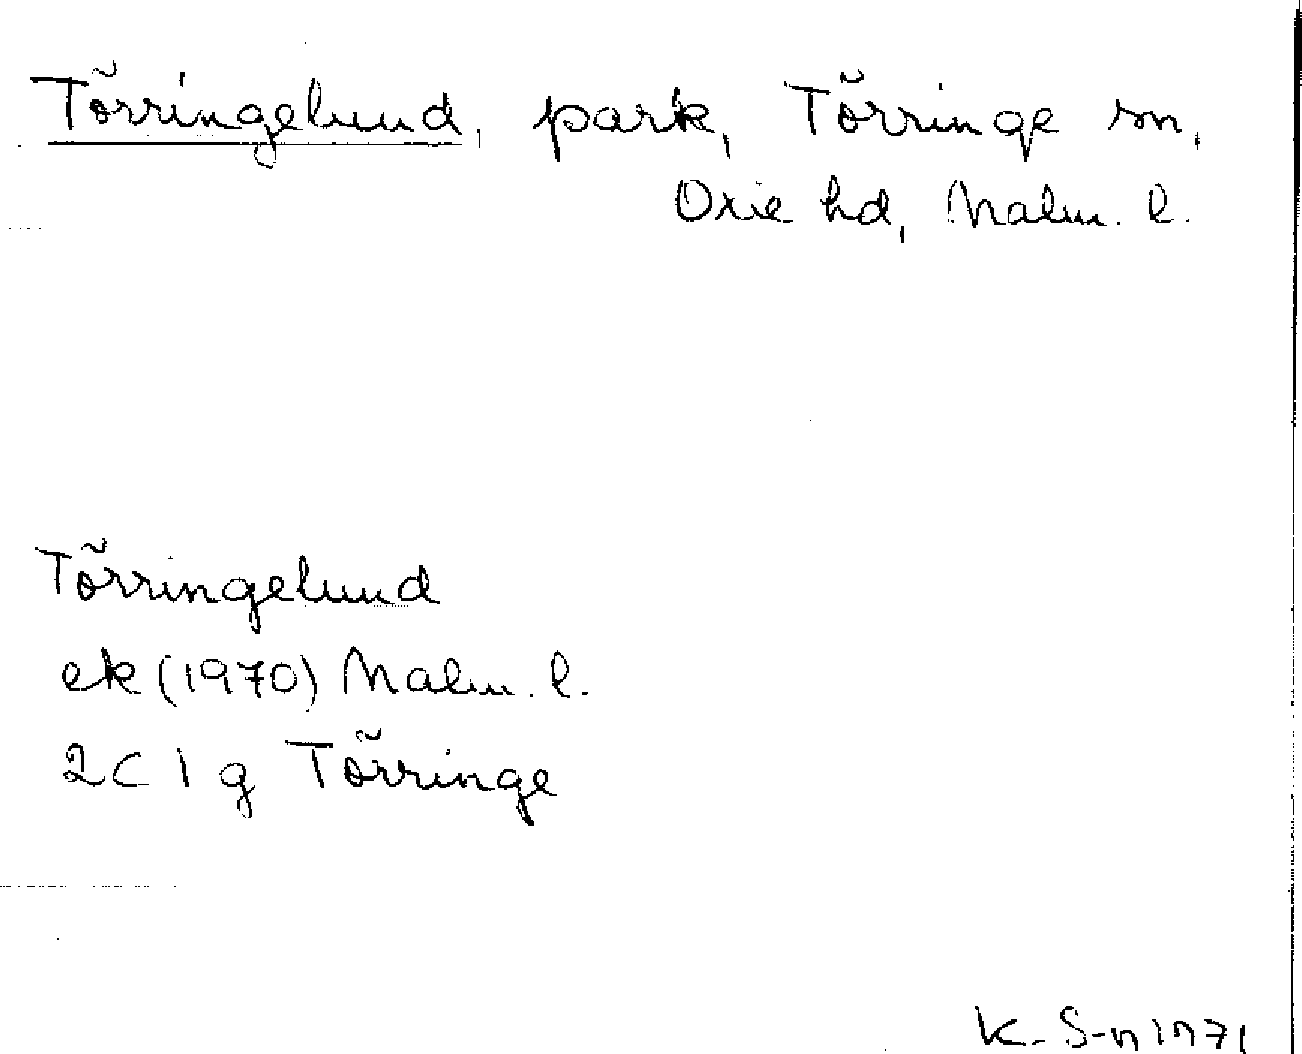 Törringelund, park, Törringe sn,
Oxie hd, Malm. l.
Törringelund
ek (1970) Malm. l.
2C 1g Törringe
K. S-n 1971